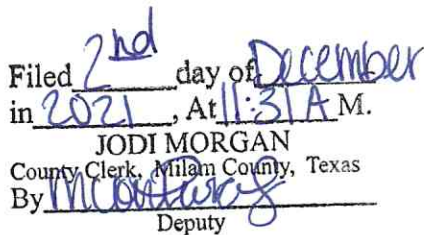 Filed 2nd day of December
in 2021, At 11:31 A M.
JODI MORGAN
County Clerk, Milam County, Texas
By
Deputy